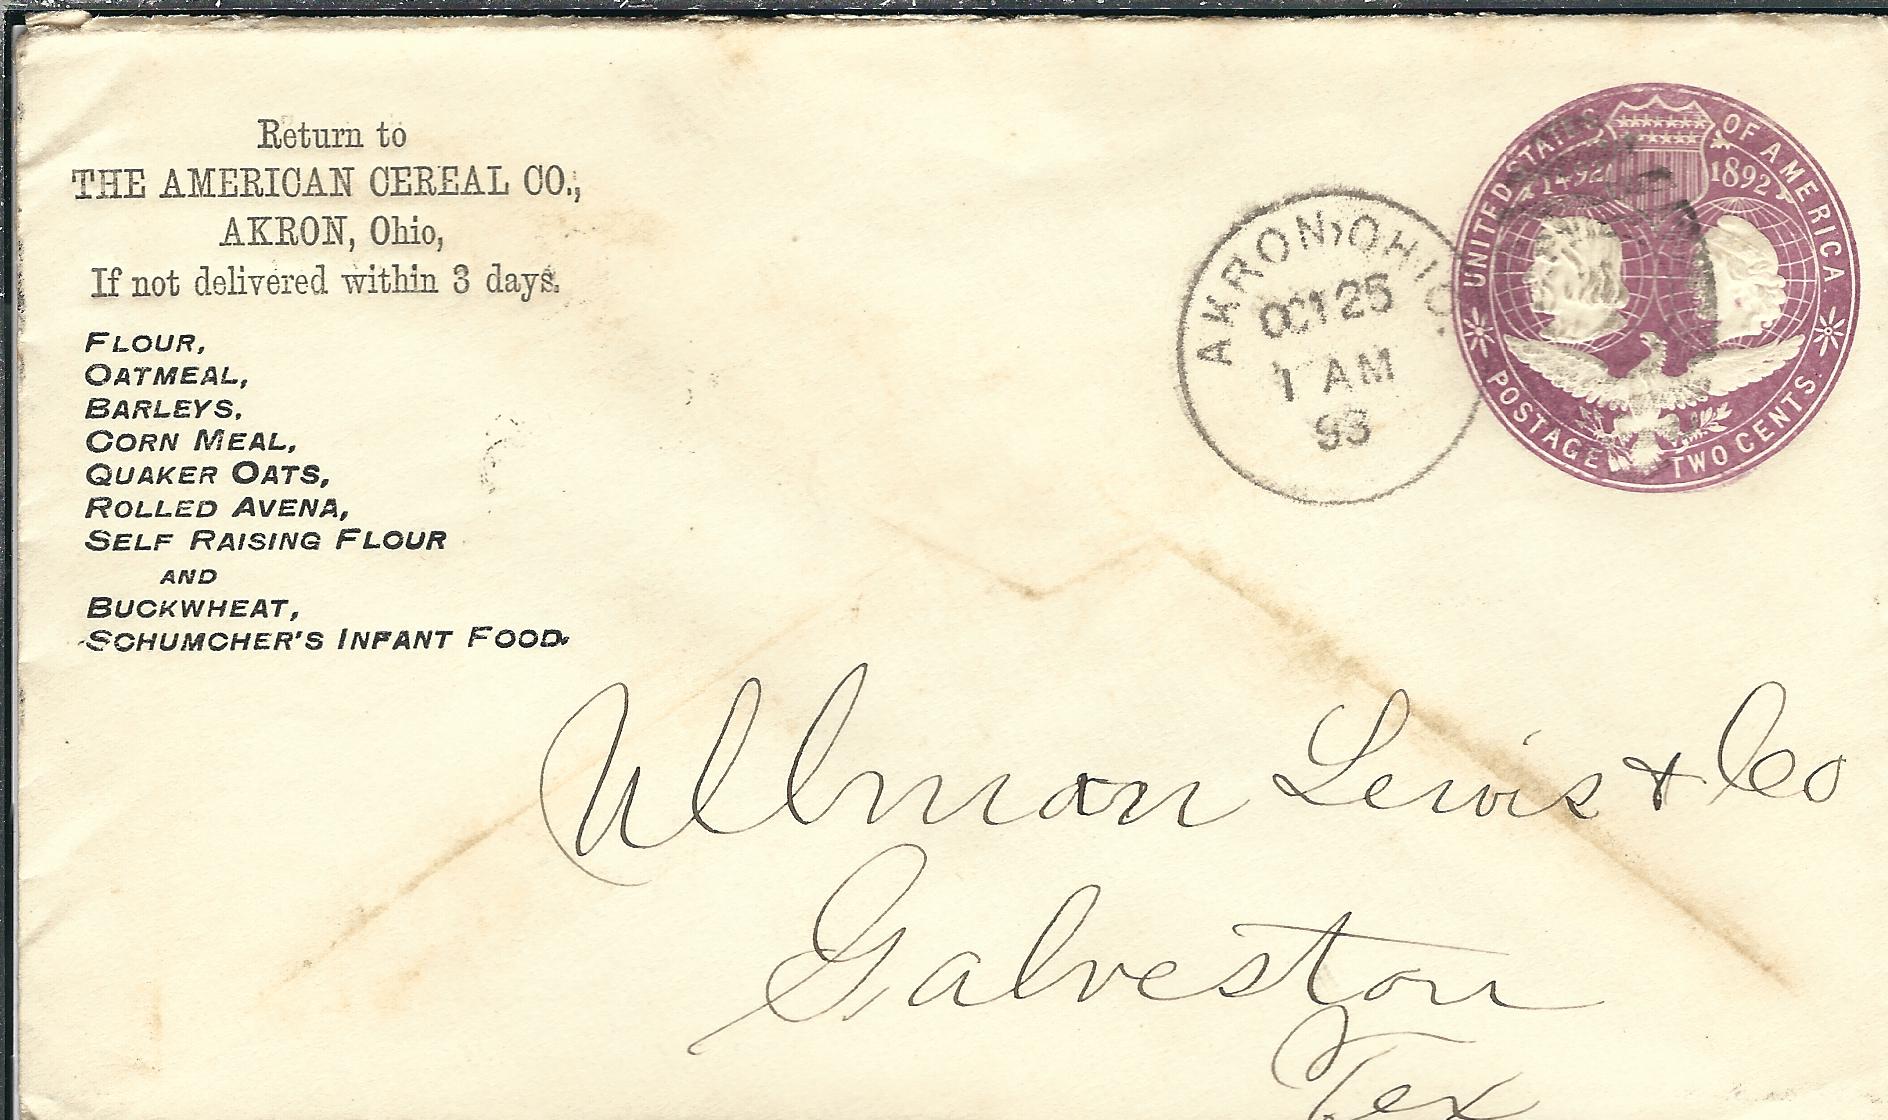 Return to
THE AMERICAN CEREAL CO.,
AKRON, Ohio,
If not delivered within 3 days.
FLOUR,
OATMEAL,
BARLEYS,
CORN MEAL,
QUAKER OATS,
ROLLED AVENA,
SELF RAISING FLOUR
AND
BUCKWHEAT,
SCHUMCHER'S INFANT FOOD.
AKRON, OHIO.
OCT 25
1 AM
93
UNITED STATES OF AMERICA
1492 1892
POSTAGE TWO CENTS
Ullman Lewis & Co
Galveston
Tex